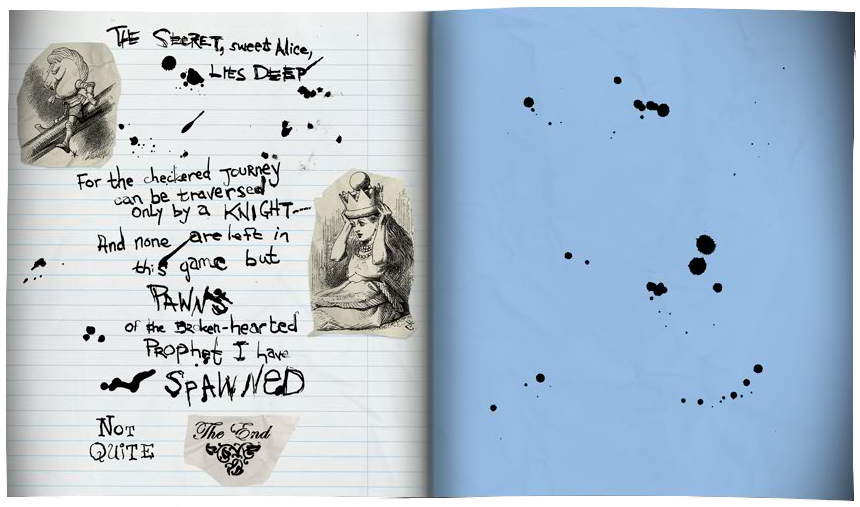 THE SECRET, sweet Alice,
LIES DEEP
For the checkered JOURNEY
can be traversed
only by a KNIGHT—
And none are left in
this game but
PAWNS
of the BROKEN-hearted
Prophet I have
SPAWNED
NOT
QUITE
The End